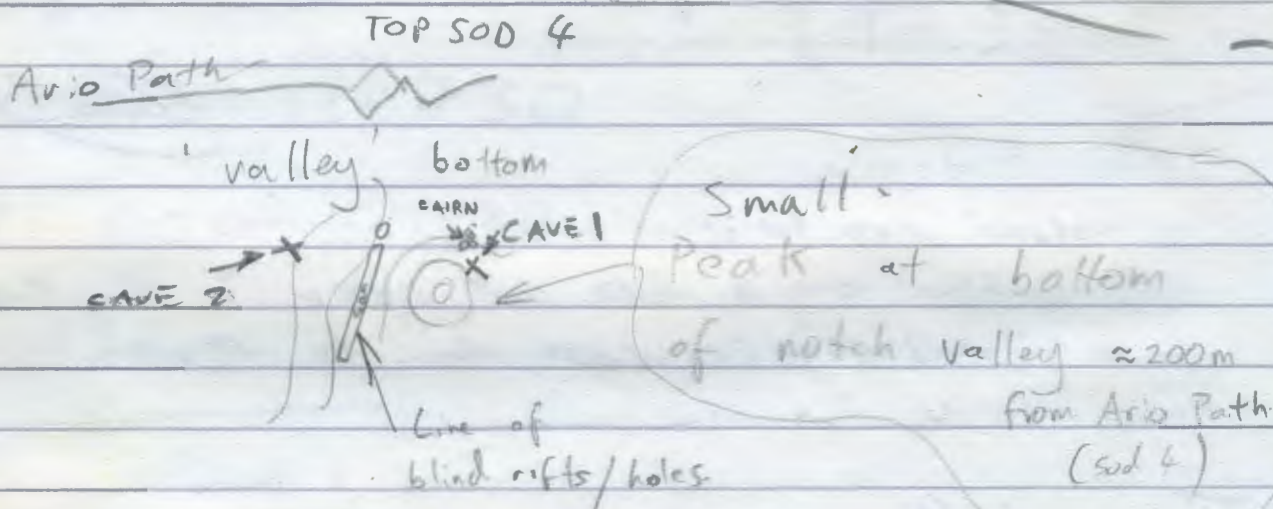 TOP SOD 4
Ario Path
'valley' bottom
CAIRN
CAVE 1
CAVE 2
Small
Peak at bottom
of notch valley ≈200m
from Ario Path
(sod 4)
Line of
blind rifts/holes